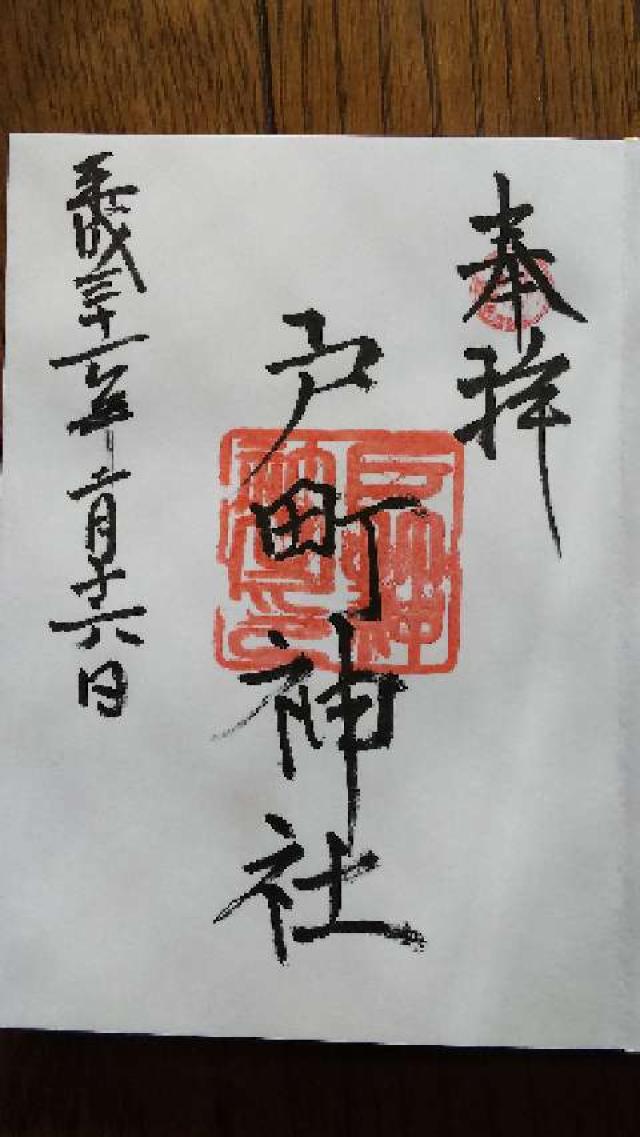 奉拝
戸町神社
平成三十一年二月十六日